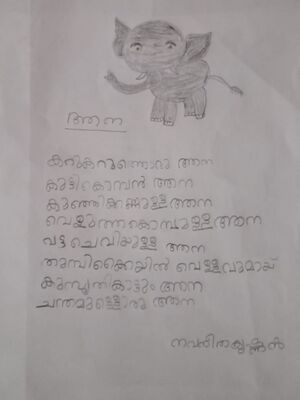 ആന
കറുകറുന്നൊറു ആന
കുട്ടികൊമ്പൻ ആന
കുഞ്ഞിക്കണ്ണുള്ള ആന
വെളുത്ത കൊമ്പുള്ള ആന
വട്ട ചെവിയുള്ള ആന
തുമ്പിക്കൈയിൽ വെള്ളവുമായ്
കുസൃതികാട്ടും ആന
ചന്തമുള്ളൊരു ആന